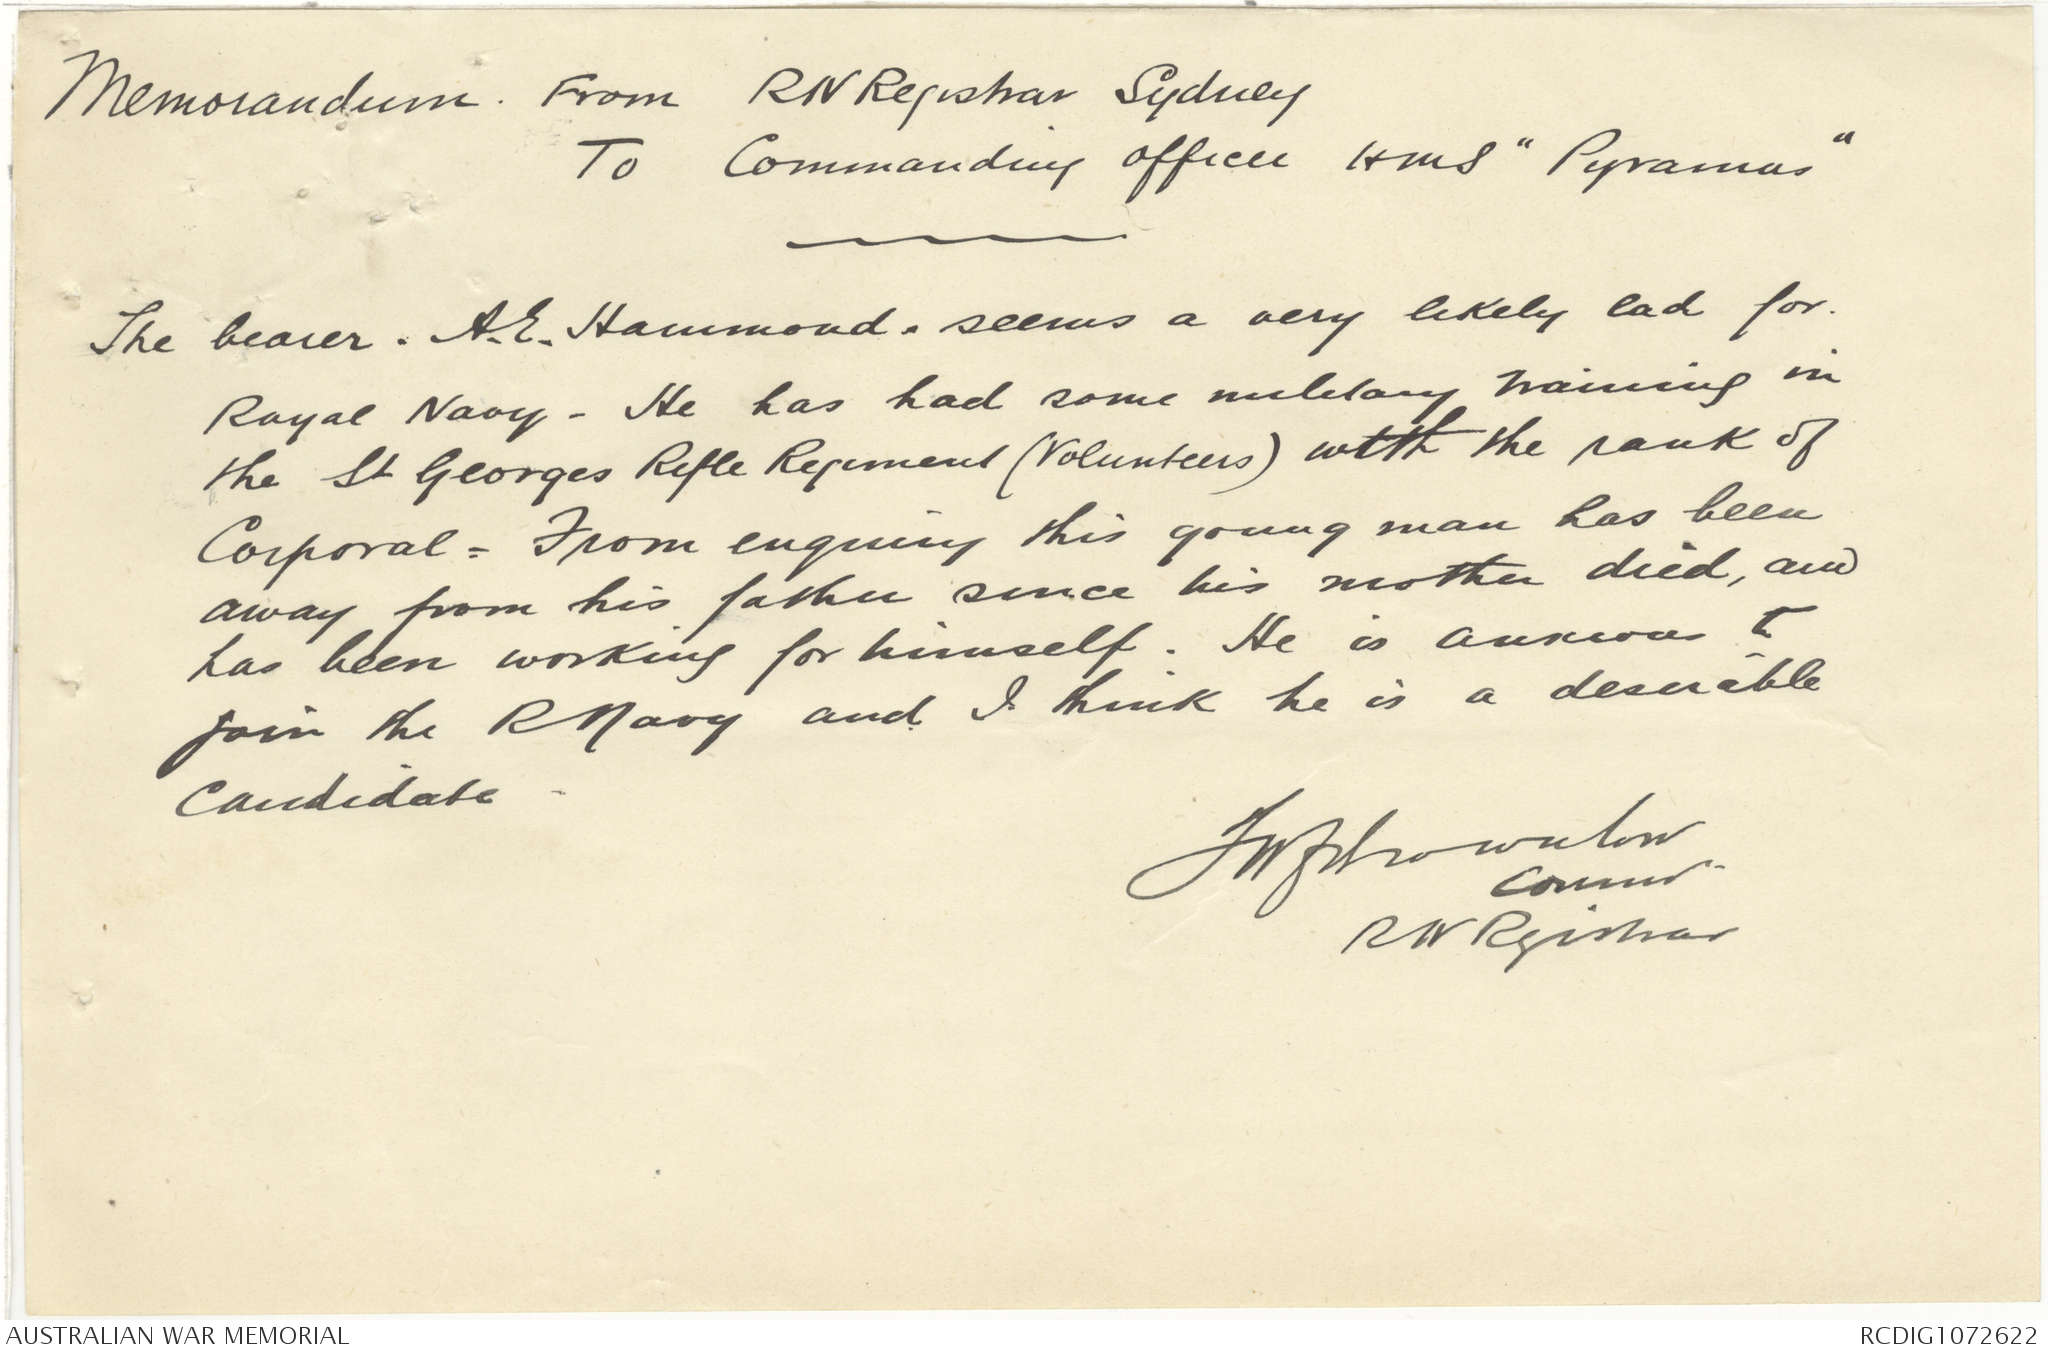 Memorandum. From RN Registrar Sydney
To Commanding officer HMS "Pyramus"
The bearer. A.E. Hammond. seems a very likely lad for.
Royal Navy - He has had some military training in
the St Georges Rifle Regiment (Volunteers) with the rank of
Corporal = From enquiry this young man has been
away from his father since his mother died, and
has been working for himself. He is anxious to
join the R Navy and I think he is a desirable
Candidate -
Brownlow
Commr
RN Registrar
AUSTRALIAN WAR MEMORIAL
RCDIG1072622